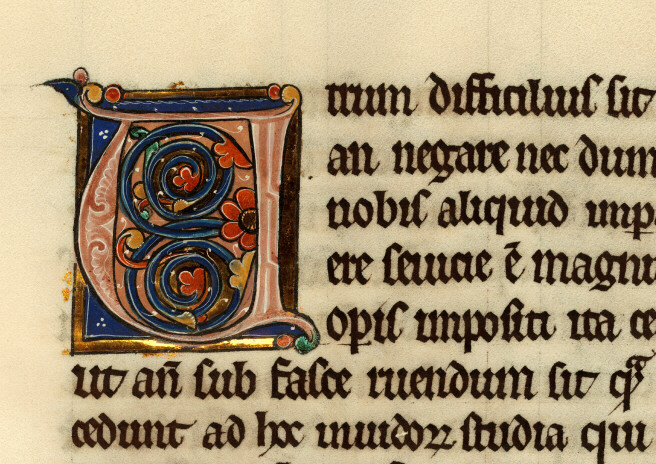 Utrum difficilius sit
an negare nec dum
nobis aliquid imp
ere ē magni
opis impositi ita ce
ut an̄ sub fasce ruendum sit qͣ
cedunt ad hoc inuidoꝝ studia qui